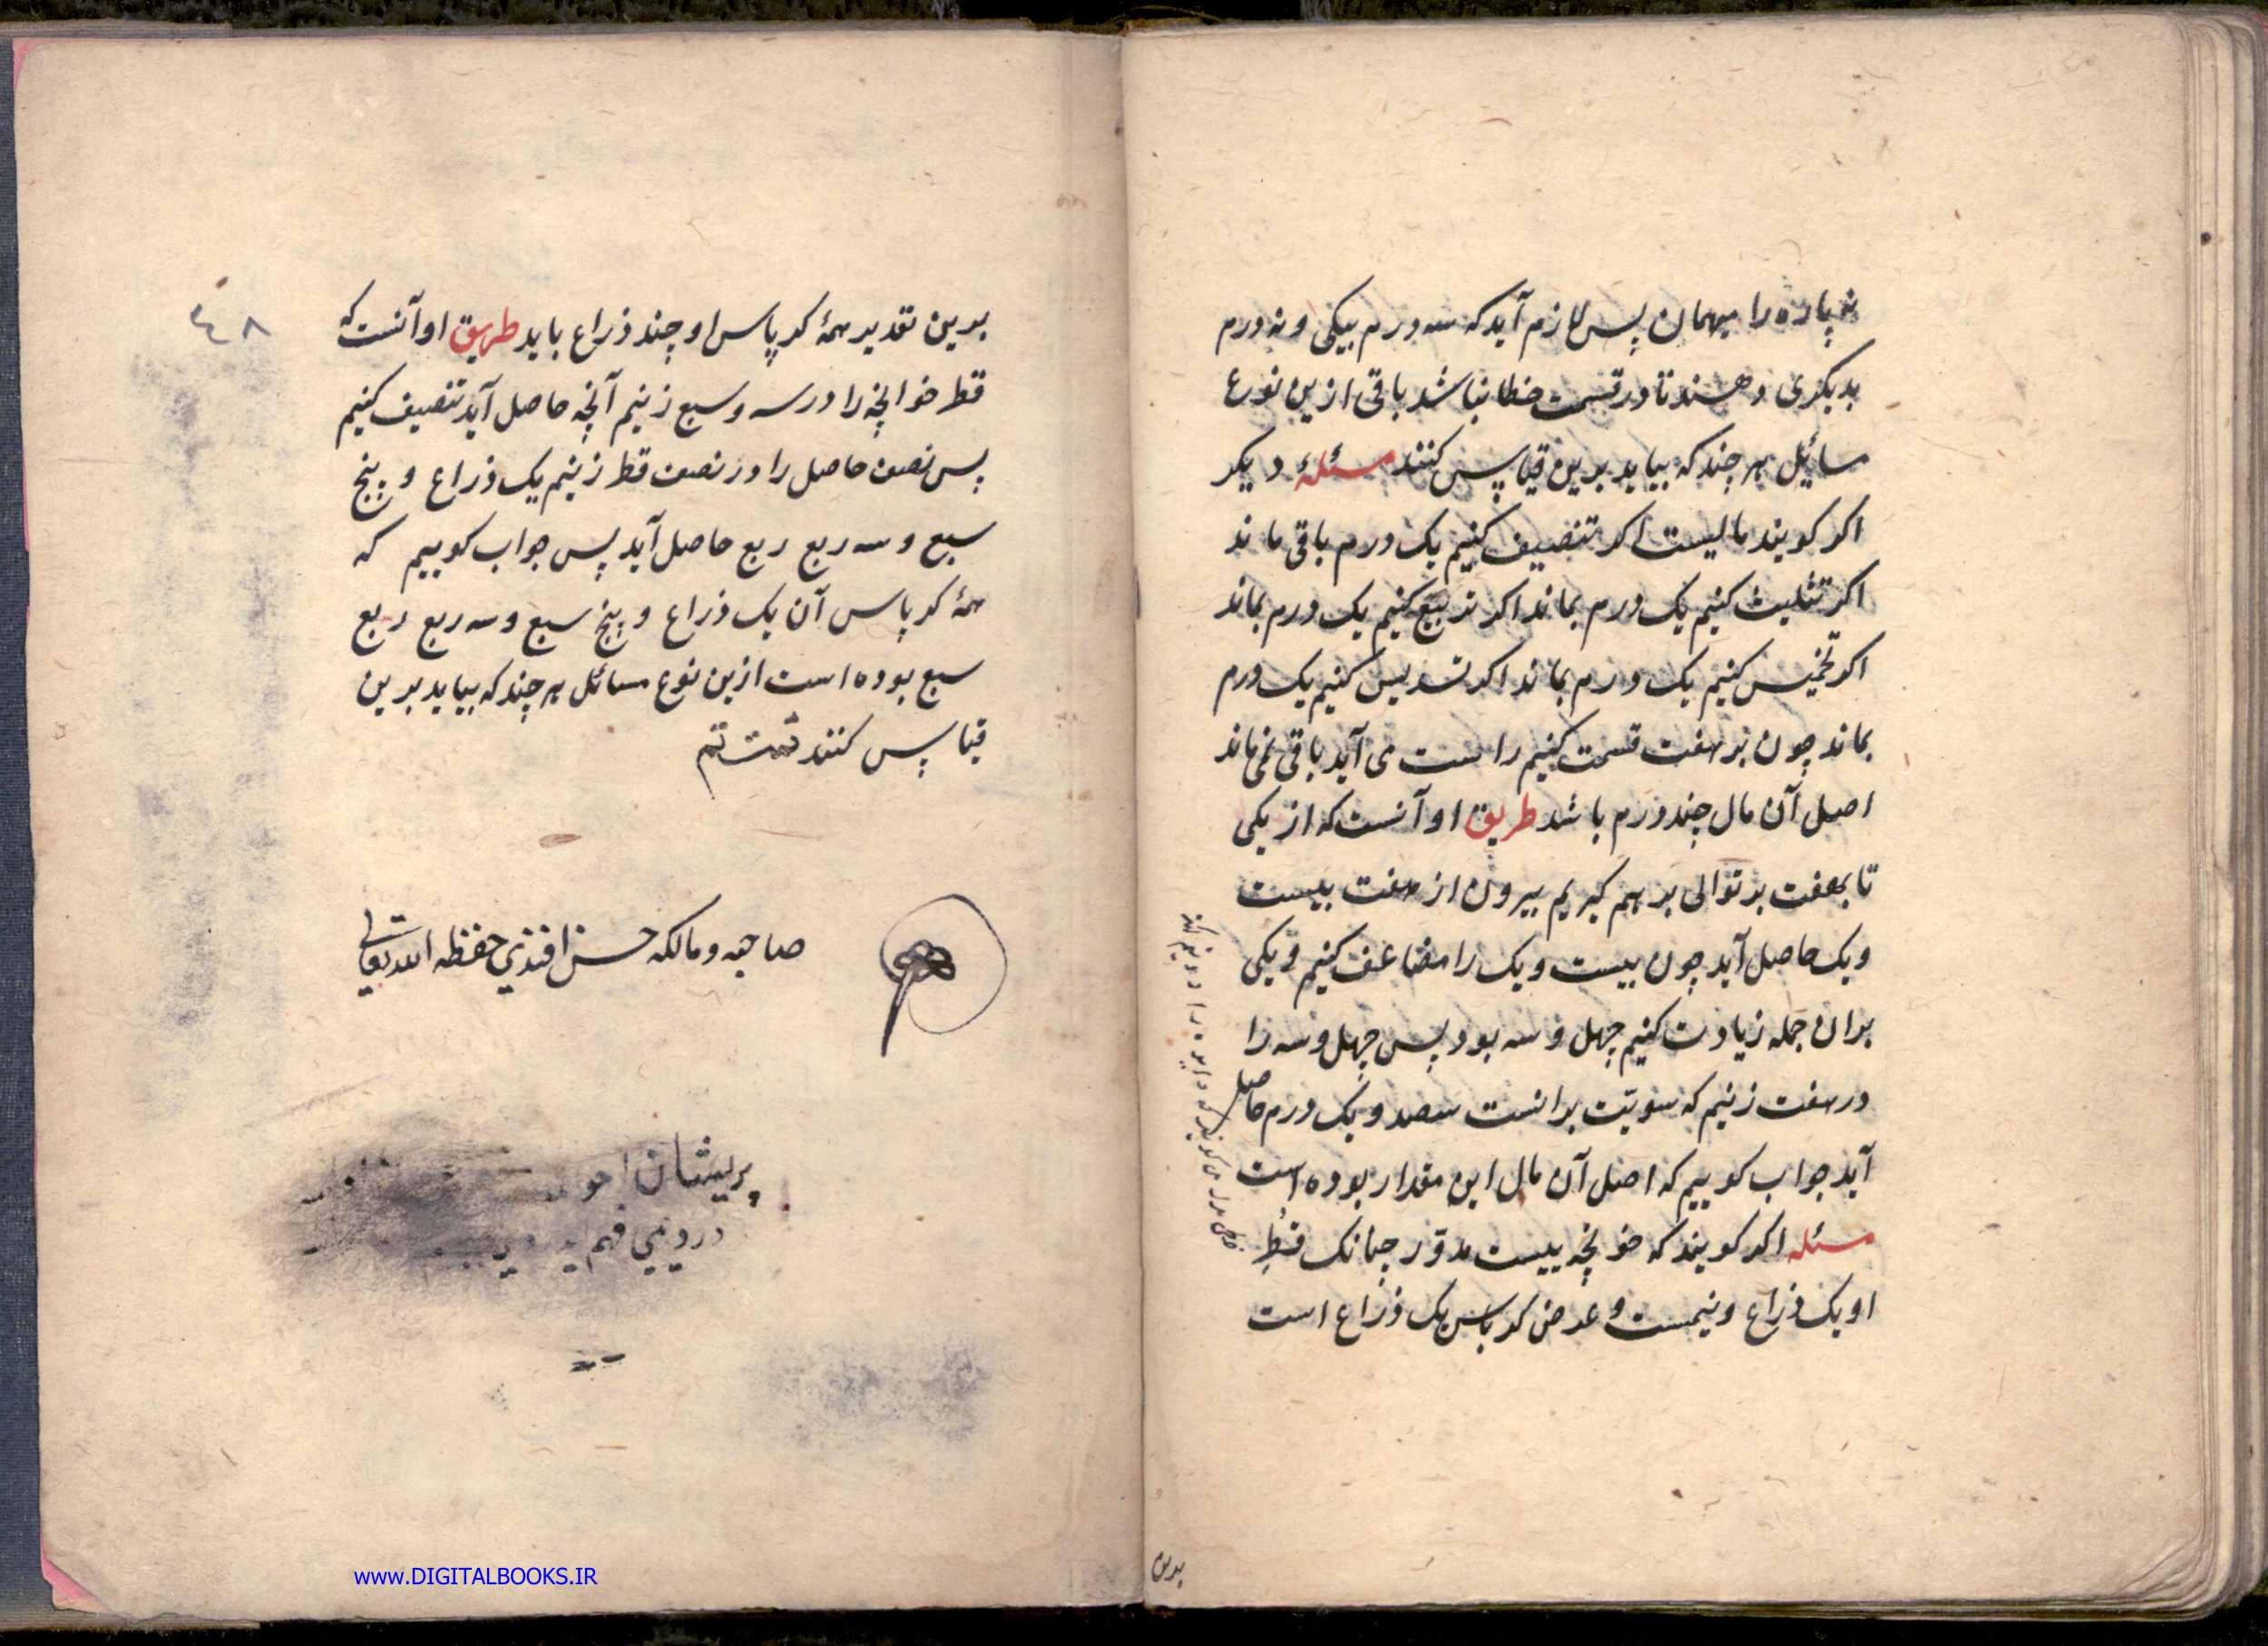 نه پاره را میهمان پس لازم آید که سه درم بیکی و نه درم
بدیکری دهند تا در قسمت خطا نباشد باقی ازین نوع
مسائل هر چند که بیاید برین قیاس کنند مسئلهٔ دیکر
اکر کویند مالیست اکر تنصیف کنیم یک درم باقی ماند
اکر تثلیث کنیم یک درم بماند اکر تربیع کنیم یک درم بماند
اکر تخمیس کنیم یک درم بماند اکر تسدیس کنیم یک درم
بماند چون بر هفت قسمت کنیم راست می آید باقی نمی ماند
اصل آن مال چند درم باشد طریق او آنست که از یکی
تا بهفت بر توالی بر هم کیریم بیرون از هفت بیست
و یک حاصل آید چون بیست و یک را مضاعف کنیم و یکی
بران جمله زیادت کنیم چهل و سه بود پس چهل و سه را
در هفت زنیم که سویّت برانست سصد و یک درم حاصل
آید جواب کوییم که اصل آن مال این مقدار بوده است
مسئله اکر کویند که خونچه ییست مدوّر چنانک قطر
او یک ذراع و نیمست و عرض کرباس یک ذراع است
بدین
بدین تقدیر همهٔ کرپاس او چند ذراع باید طریق او آنست که
قطر خوانچه را در سه و سبع زنیم آنچه حاصل آید تنصیف کنیم
پس نصف حاصل را در نصف قطر زنیم یک ذراع و پنج
سبع و سه ربع ربع حاصل آید پس جواب کوییم که
همهٔ کرپاس آن یک ذراع و پنج سبع و سه ربع ربع
سبع بوده است ازین نوع مسائل هر چند که بیاید برین
قیاس کنند تمت تم
٤٨
صاحبه ومالکه حسن افندي حفظه الله تعالی
پریشان
www.DIGITALBOOKS.IR